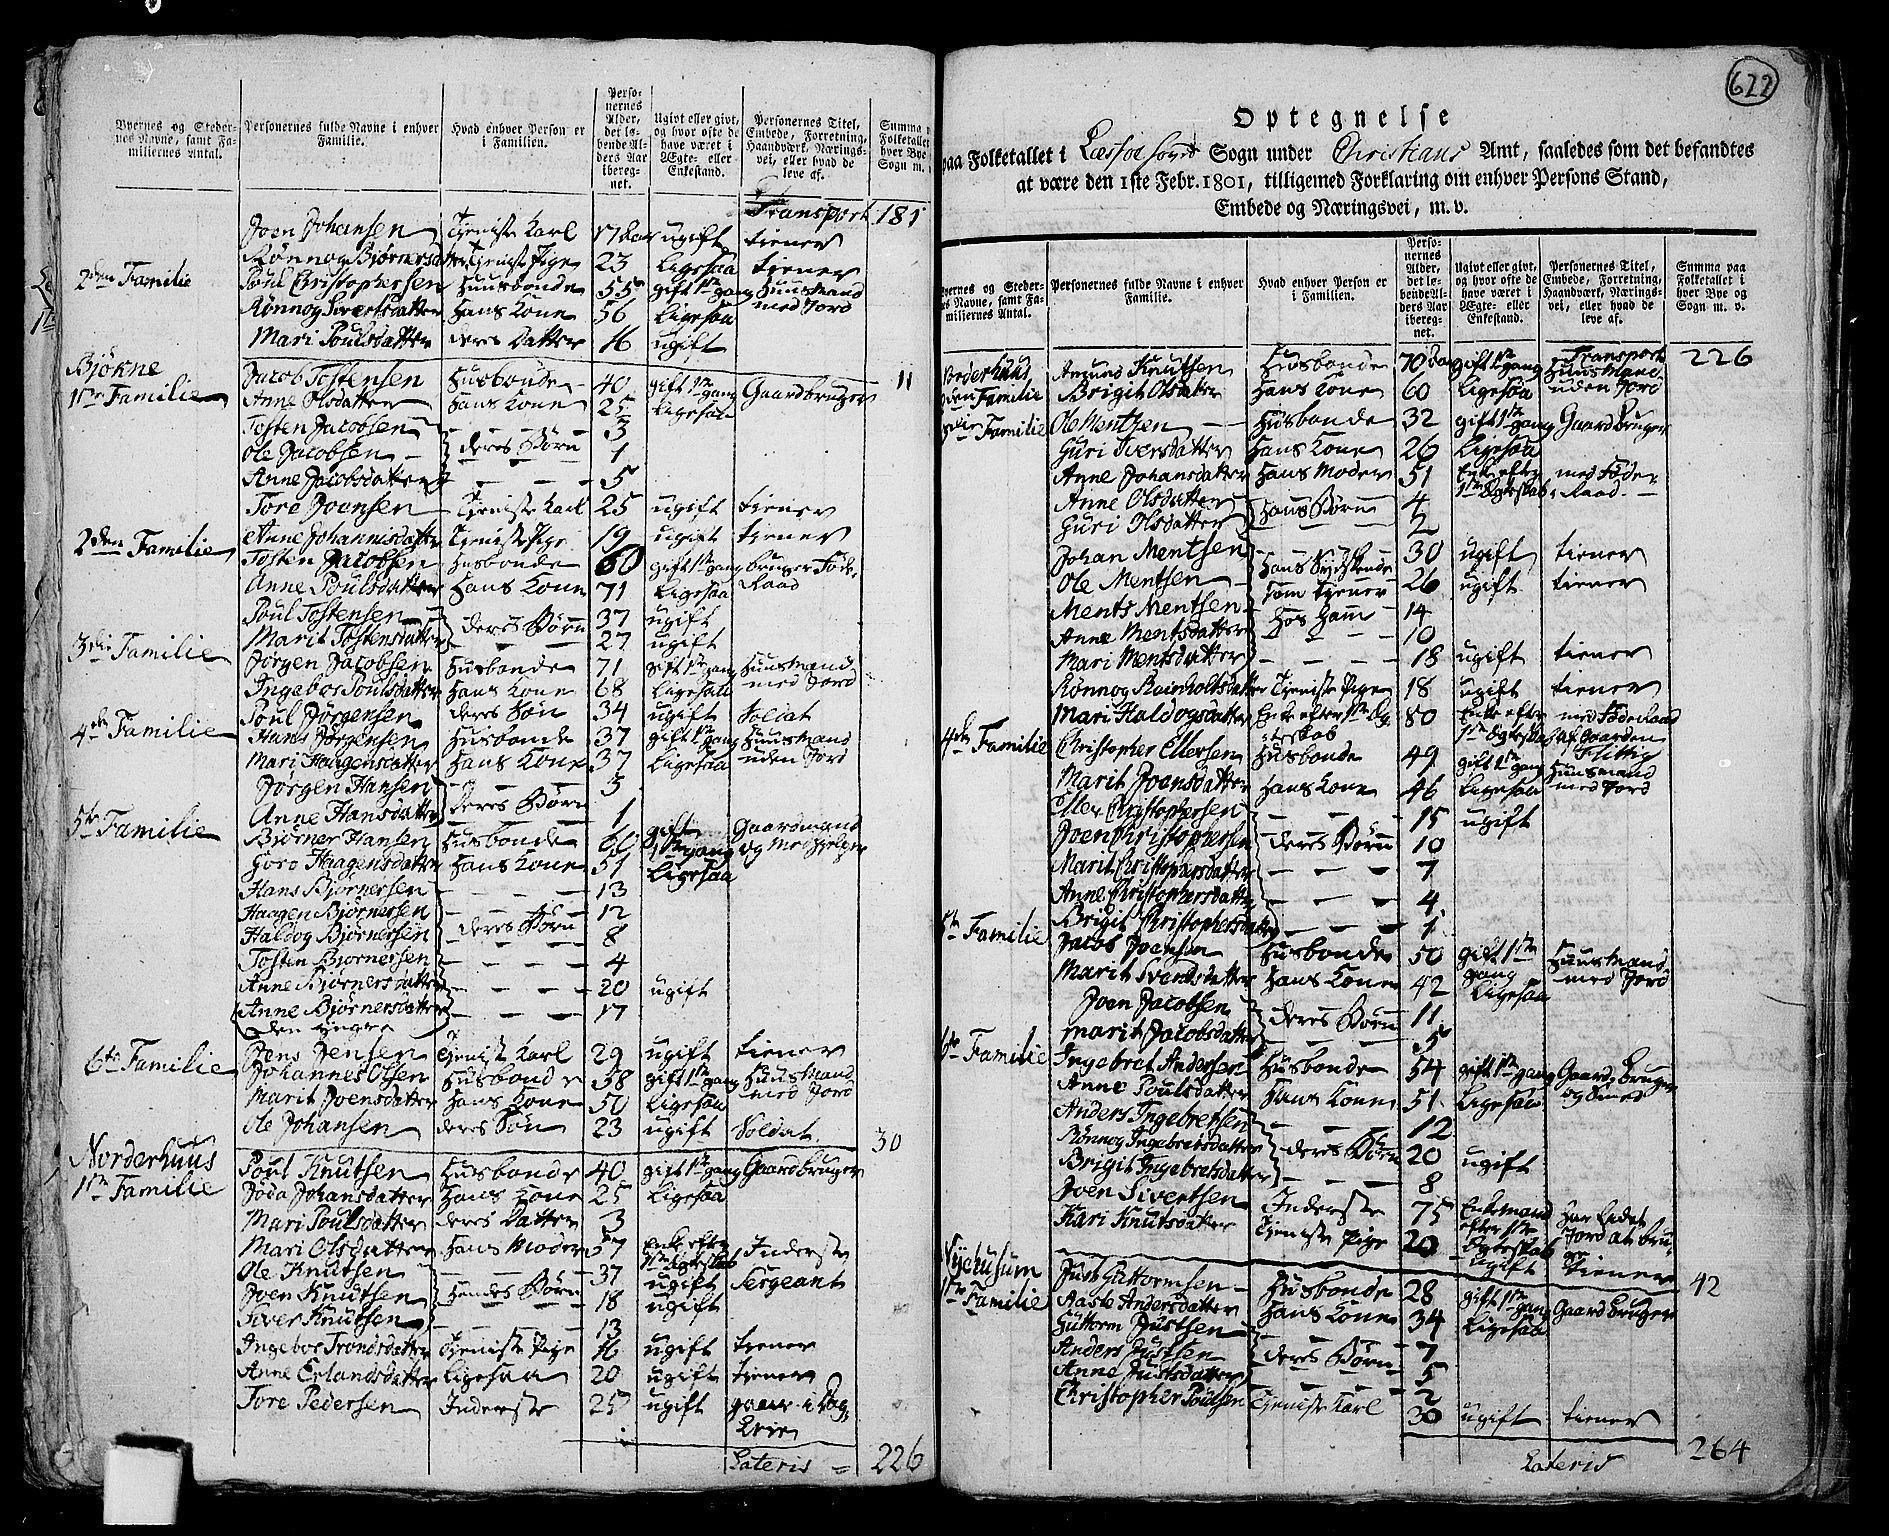 Byernes og Steder-nes Navne, samt Fa-miliernes Antal. | Personernes fulde Navne i enhver Familie. | Hvad enhver Person er i Familien. | Perso-nernes Alder, det lø-bende Al-ders Aar ibereg-net. | Ugivt eller givt, og hvor ofte de have været i Ægte- eller Enkestand. | Personernes Titel, Embede, Forretning, Haandværk, Nærings-vei, eller hvad de leve af. | Summa Folketallet hver Bye Sogn m.
Transport 181
Joen Johansen Tjeniste Karl 17 Aar ugift tiener
Rønnog Bjørnersdatter Tjeniste Pige 23 Ligesaa tiener
2den Familie Poul Christophersen Huusbonde 55 gift 1ste gang Huusmand
Rønnog Sivertsdatter Hans Kone 56 Ligesaa med Jord
Mari Poulsdatter deres Datter 16 ugift
Bjøkne
1ste Familie Jacob Tostensen Husbonde 40 gift 1ste gang Gaardbruger 11
Anne Olsdatter Hans Kone 25 Ligesaa
Tosten Jacobsen 3
Ole Jacobsen deres Børn 1
Anne Jacobsdatter 5
Tore Joensen Tjeniste Karl 25 ugift tiener
Anne Johannisdatter Tjeniste Pige 19 ugift tjener
2den Familie Tosten Jacobsen Husbonde 60 gift 1ste gang bruger Føde
Anne Poulsdatter Hans Kone 71 Ligesaa Raad
Poul Tostensen 37 ugift
Marit Tostensdatter deres Børn 27 ugift
3die Familie Jørgen Jacobsen Husbonde 71 gift 1ste gang Huusmand
Ingebor Poulsdatter Hans Kone 68 Ligesaa med Jord
Poul Jørgensen deres Søn 34 ugift Soldat
4de Familie Hans Jørgensen Husbonde 37 gift 1ste gang Huusmand
Mari Haagensdatter Hans Kone 37 Ligesaa uden Jord
Jørgen Hansen 3
Anne Hansdatter deres Børn 1
5te Familie Bjørner Hansen Husbonde 60 gift 1ste gang Gaardmand
Goro Haagensdatter Hans Kone 51 Ligesaa
Hans Bjørnersen 13
Haagen Bjørnersen 12
Haldog Bjørnersen deres Børn 8
Tosten Bjørnersen 4
Anne Bjørnersdatter 20 ugift
Anne Bjørnersdatter 17
den yngre
Jens Jensen Tjeniste Karl 29 ugift tiener
6te Familie Johannes Olsen Husbonde 58 gift 1ste gang Huusmand
Marit Joensdatter Hans Kone 50 Ligesaa med Jord
Ole Johansen deres Søn 23 ugift Soldat. 30
Norderhuus
1ste Familie Poul Knutsen Husbonde 40 gift 1ste gang Gaardbruger
Joda Johansdatter Hans Kone 25 Ligesaa
Mari Poulsdatter deres Datter 3
Mari Olsdatter Hans Moder 57 Enke efter 1ste Egteskab Inderste
Ole Knutsen 37 ugift Sergeant
Joen Knutsen Hendes Børn 18 ugift
Iver Knutsen 13
Ingebor Trondsdatter Tjeniste Pige 16 ugift tiener
Anne Erlandsdatter Ligesaa 20 ugift tiener
Tore Pedersen Inderste 25 ugift gaaer i
Lateris 226
622
Optegnelse
paa Folketallet i Læssøe Sogn under Christians Amt, saaledes som det befandtes
at være den 1ste Febr. 1801, tilligemed Forklaring om enhver Persons Stand,
Embede og Næringsvei, m. v.
Byernes og Steder-nes Navne, samt Fa-miliernes Antal. | Personernes fulde Navne i enhver Familie. | Hvad enhver Person er i Familien. | Perso-nernes Alder, det lø-bende Al-ders Aar ibereg-net. | Ugivt eller givt, og hvor ofte de have været i Ægte- eller Enkestand. | Personernes Titel, Embede, Forretning, Haandværk, Nærings-vei, eller hvad de leve af. | Summa paa Folketallet i hver Bye og Sogn m. v.
Transport 226
Norderhuus Amund Knutsen Husbonde 70 Aar gift 1ste gang Huusmand
2den Familie Brigit Olsdatter Hans Kone 60 Ligesaa uden Jord
3die Familie Ole Mentzen Husbonde 32 gift 1ste gang Gaardbruger
Guri Iversdatter Hans Kone 26 Ligesaa
Anne Johansdatter Hans Moder 51 Enke efter 1ste Egteskab med Føde Raad
Anne Olsdatter 4
Guri Olsdatter Hans Børn 2
Johan Mentsen 30 ugift tiener
Ole Mentsen Hans Sydskende 26 ugift tiener
Ments Mentsen som tjener 14
Anne Mentsdatter Hos Ham 10
Mari Mentsdatter 18 ugift tiener
Rønnog Rainholtsdatter Tjeniste Pige 18 ugift tiener
Mari Haldogsdatter Enke efter 1ste Egteskab 80 Enke efter 1ste Egteskab med FødeRaad af Gaarden Flittig
4de Familie Christopher Ellersen Husbonde 49 gift 1ste gang Huusmand
Marit Joensdatter Hans Kone 46 Ligesaa med Jord
Eller Christophersen 15 ugift
Joen Christophersen deres Børn 10
Marit Christophersdatter 7
Anne Christophersdatter 4
Brigit Christophersdatter 1
5te Familie Jacob Joensen Husbonde 50 gift 1ste gang Huusmand
Marit Svendsdatter Hans Kone 42 Ligesaa med Jord
Joen Jacobsen deres Børn 11
Marit Jacobsdatter 5
6te Familie Ingebret Andersen Husbonde 54 gift 1ste gang Gaardbruger
Anne Poulsdatter Hans Kone 51 Ligesaa og Smed
Anders Ingebretsen 12
Rønnog Ingebretsdatter deres Børn 20 ugift
Brigit Ingebretsdatter 8
Joen Sivertsen Inderste 75 Enkemand efter 1ste Egteskab Har Ledet Jord at bruge
Kari Knutsdatter Tjeniste Pige 20 ugift tiener
42
1ste Familie Just Guttormsen Husbonde 28 gift 1ste gang Gaardbruger
Aaste Andersdatter Hans Kone 34 Ligesaa
Guttorm Justsen 7
Anders Justsen deres Børn 5
Anne Justsdatter 2
Christopher Poulsen Tjeniste Karl 30 ugift tiener
Lateris 264